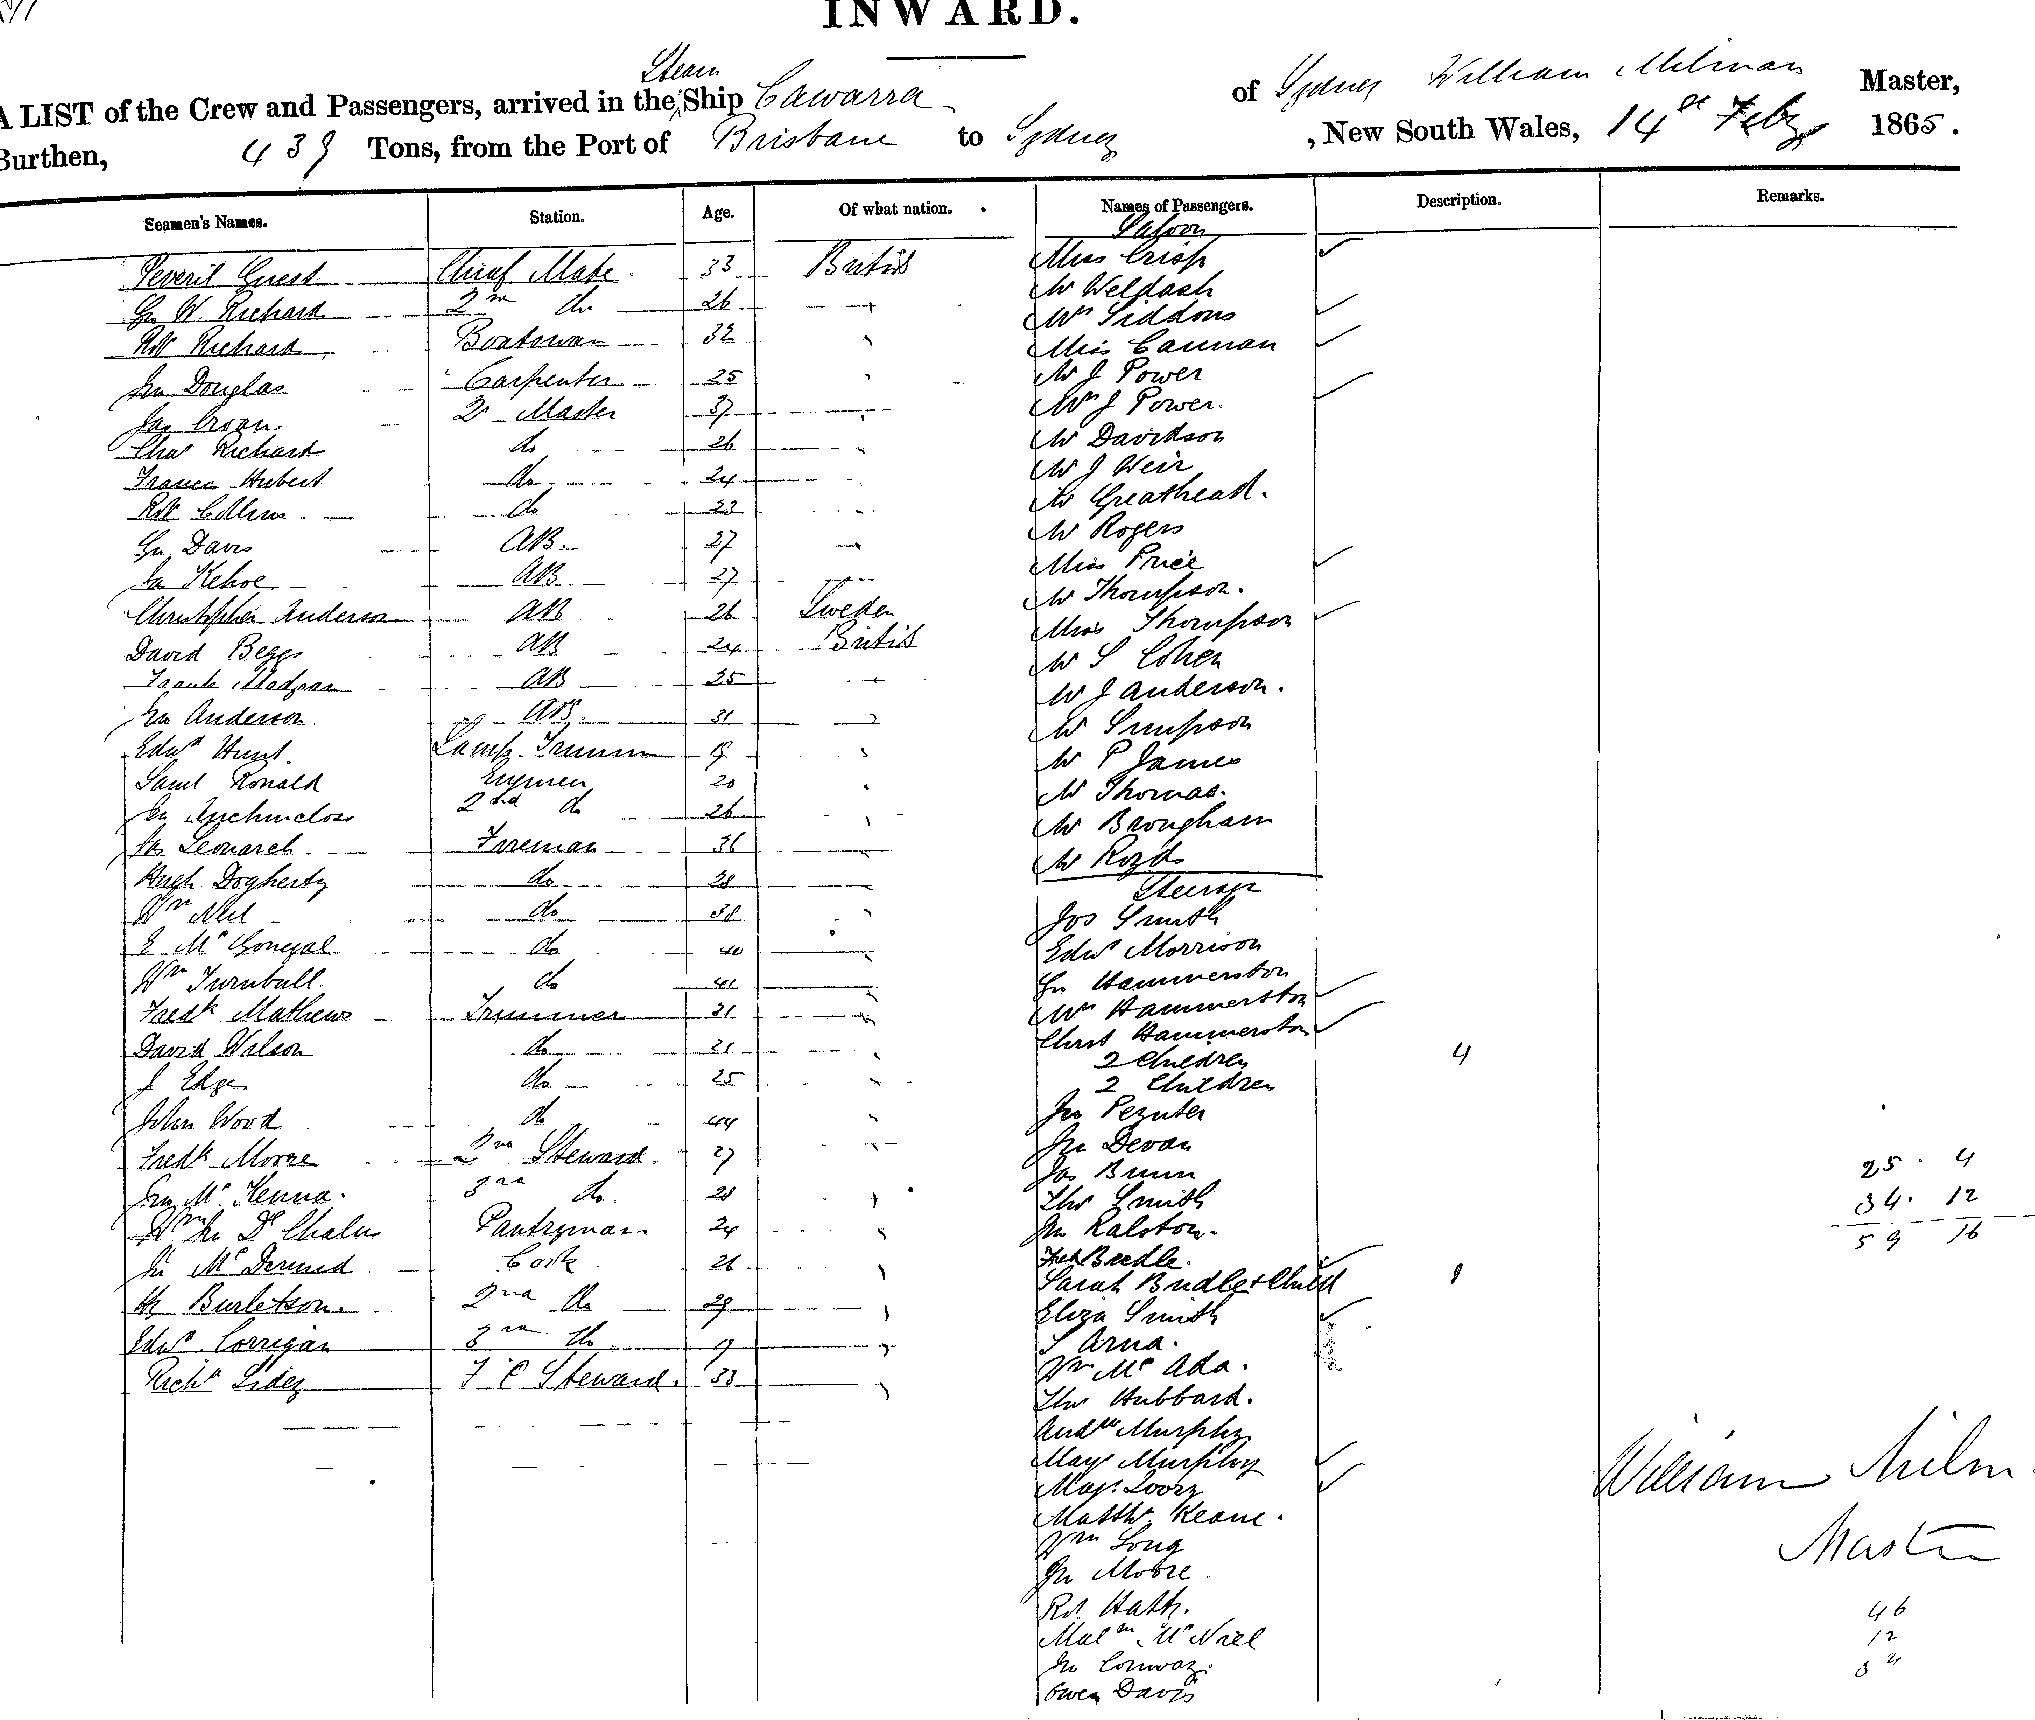 INWARD.
A LIST of the Crew and Passengers, arrived in the Steam Ship Cawarra of Sydney William Milman Master,
Burthen, 439 Tons, from the Port of Brisbane to Sydney , New South Wales, 14th Feby 1865.
Seamen's Names. Station. Age. Of what nation. Names of Passengers. Description. Remarks.
Saloon
Peveril Guest Chief Mate 33 British Miss Crisp
Mr Weldash
W. Richard 2nd do 26 Mrs Siddons
Robt Richard Boatswan 32 Miss Cannan
Jn Douglas Carpenter 25 Mr J Power
Jas Croan Qr Master 37 Mrs J Power.
Chas Richard do 26 Mr Davidson
France Hubert do 24 Mr J Weir
Robt Collins do 23 Mr Greathead.
Davis AB 27 Mr Rogers
Jn Kehoe AB 27 Miss Price
Christopher Anderson AB 26 Sweden Mr Thompson.
David Beggs AB 24 British Miss Thompson
Frank AB 25 Mr S Cohen
Jn Anderson AB 31 Mr J Anderson.
Edwd Hunt Lamp Trimm 19 Mr Simpson
Saml Ronald Engineer 20 Mr P James
2nd do 26 Mr Thomas.
Jas Leonard Fireman 36 Mr Brougham
Hugh Dogherty do 28 Mr Royds
Steerage
Wm Neil do 38 Jos Smith
E McGonegal do 40 Edwd Morrison
Wm Turnbull do 41 Jn Hammerston
Fredk Mathews Trimmer 21 Mrs Hammerston
David Walson do 21 Christ Hammerston
2 Children 4
J Edge do 25 2 Children
John Wood do 44 Jn Peznter
Fredk Moore 2nd Steward 27 Jn Devan
25. 4
Jn McKenna 3rd do 28 Jas Brunn
34. 12
Wm Jn D Chalus Pantryman 24 Thos Smith
59 16
Jn Ralston.
Jn McDermid Cook 26 Fredk Birdle.
Sarah Birdle + Child 1
H Burletson 2nd do 29 Eliza Smith
Edwd Corrigan 3rd do 19 S Arna.
Richd Sidey F C Steward 33 Wm McAda.
Thos Hubbard.
Andw Murphy
Mary Murphy
Mary Loory
William Milm
Matthw Keane.
Wm Long
Master
Jn Moore
Rd. Hath.
46
Malm McNiel
12
Jn Conway.
Owen Davis